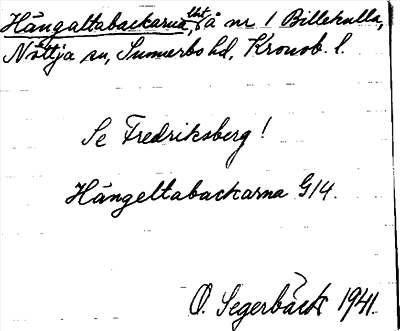 Hångattabackarna, lht å nr 1 Billehulla,
Nöttja sn, Sunnerbo hd, Kronob. l.
Se Fredriksberg!
Hångettabackarna G14.
O. Segerbäck 1941.